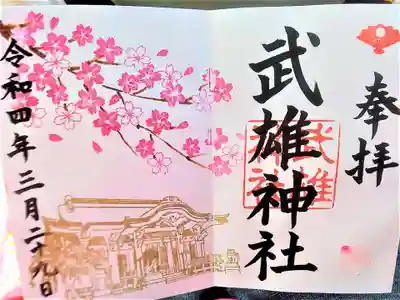 奉拝
武雄神社
武雄神社
令和四年三月二十九日